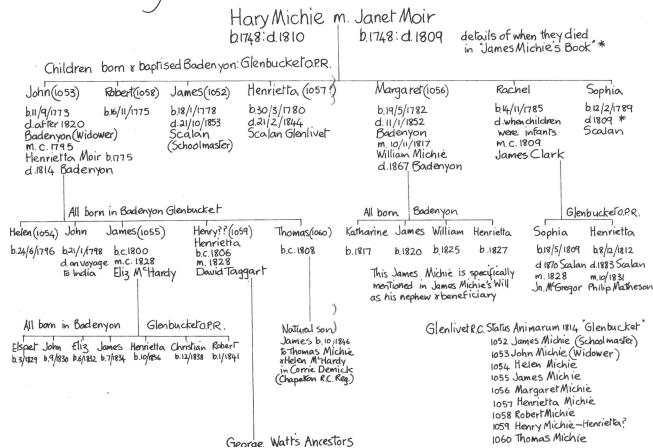 Hary Michie m. Janet Moir
b.1748: d.1810
b.1748: d.1809
details of when they died
in "James Michie's Book" *
Children born & baptised Badenyon: Glenbucket O.P.R.
John (1053)
b.11/9/1773
d.after 1820
Badenyon (Widower)
m. c. 1795
Henrietta Moir b.1775
d.1814 Badenyon
Robert (1058)
b.16/11/1775
James (1052)
b.18/1/1778
d.21/10/1853
Scalan
(Schoolmaster)
Henrietta (1057?)
b.30/3/1780
d.21/2/1844
Scalan Glenlivet
Margaret (1056)
b.19/5/1782
d.11/1/1852
Badenyon
m. 10/11/1817
William Michie
d.1867 Badenyon
Rachel
b.4/11/1785
d.when children
were infants
m. c. 1809
James Clark
Sophia
b.12/2/1789
d 1809 *
Scalan
All born in Badenyon Glenbucket
Helen (1054)
b.24/6/1796
John
b.21/1/1798
d on voyage
to India
James (1055)
b.c.1800
m. c. 1828
Eliz McHardy
Henry?? (1059)
Henrietta
b.c. 1806
m. 1828
David Taggart
Thomas (1060)
b.c. 1808
All born Badenyon
Katharine
b.1817
James
b.1820
William
b.1825
Henrietta
b.1827
This James Michie is specifically
mentioned in James Michie's Will
as his nephew & beneficiary
Glenbucket O.P.R.
Sophia
b.18/5/1809
d 1870 Scalan
m. 1828
Jn. McGregor
Henrietta
b.8/2/1812
d.1883 Scalan
m.10/1831
Philip Matheson
All born in Badenyon Glenbucket O.P.R.
Elspet
b.3/1829
John
b.9/1830
Eliz
b.6/1832
James
b.7/1834
Henrietta
b.10/1836
Christian
b.12/1838
Robert
b.1/1841
Natural son
James b.10/1846
to Thomas Michie
& Helen McHardy
in Corrie Demick
(Chapelton R.C. Reg.)
George Watt's Ancestors
Glenlivet R.C. Status Animarum 1814 "Glenbucket"
1052 James Michie (Schoolmaster)
1053 John Michie (Widower)
1054 Helen Michie
1055 James Michie
1056 Margaret Michie
1057 Henrietta Michie
1058 Robert Michie
1059 Henry Michie - Henrietta?
1060 Thomas Michie